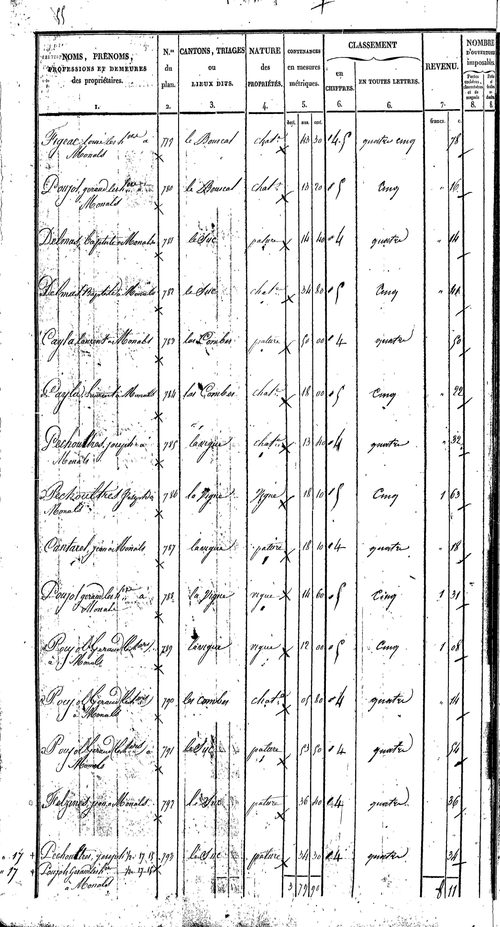 55
NOMS, PRÉNOMS, PROFESSIONS ET DEMEURES des propriétaires. N.os du plan. CANTONS, TRIAGES OU LIEUX DITS. NATURE des PROPRIÉTÉS. CONTENANCES en mesures métriques. CLASSEMENT en CHIFFRES. EN TOUTES LETTRES. REVENU. NOMBRE D'OUVERTURES imposables.
1. 2. 3. 4. 5. 6. 6. 7. 8. 8.
hect. ares cent. francs. c.
Figeac, à 779 le Bouscat chat. 43 30 4.5 quatre cinq 78
Monals
Poujol, gerand les h à 780 le Bouscat chat. 13 20 5 Cinq " 16
Monals
Delmas, Baptiste à Monals 781 le Suc pature 14 40 4 quatre " 14
Delmas, Baptiste à Monals 782 le Suc chat. 34 80 5 Cinq "
Cayla, laurent à Monals 783 las Combes pature 50 00 4 quatre 50
Cayla, à Monals 784 las Combes chat. 18 00 5 Cinq " 22
Pechoultres, joseph à 785 lavigne chat. 13 40 4 quatre " 32
Monals
Pechoultrés Joseph à 786 la Vigne Vigne 18 10 5 Cinq 1 63
Monals
Cantarel, jean à Monals 787 lavigne pature 18 10 4 quatre " 18
Poujol, gerand les h à 788 la Vigne vigne 14 60 5 Cinq 1 31
Monals
Poujol Geraud 789 lavigne vigne 12 00 5 Cinq 1 08
à Monals
Poujol Geraud 790 las combes chat. 05 80 4 quatre " 14
à Monals
Poujol Geraud à 791 le Suc pature 53 50 4 quatre 54
Monals
jean à Monals 792 le Suc pature 36 40 4 quatre 36
17 + Pechoultres, joseph 793 le Suc pature 34 30 4 quatre 34
17 + Poujol Geraud
à Monals 3 79 90 8 11